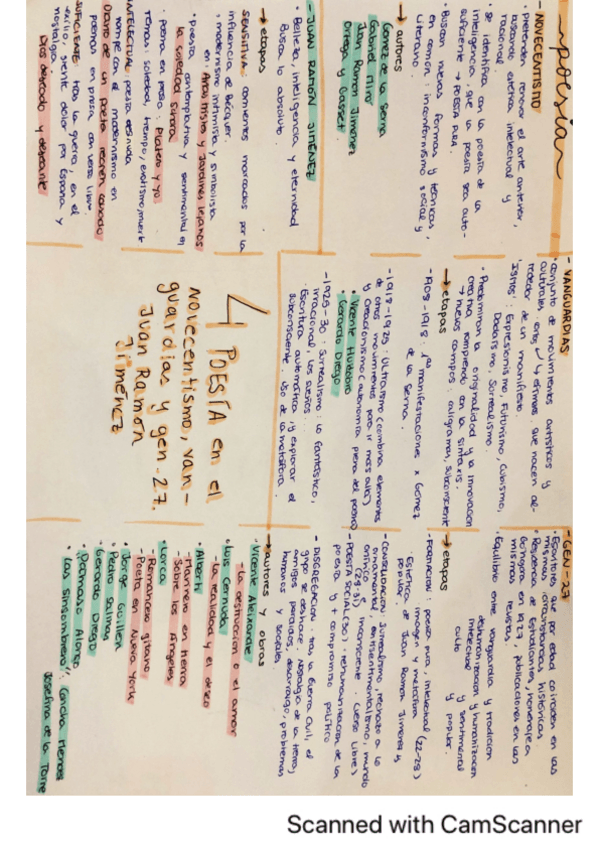 poesía
- NOVECENTISMO
· Pretenden renovar el arte anterior,
buscando esencia intelectual y
racional.
· se identifica con la poesía de la
inteligencia: que la poesía sea auto-
suficiente → POESÍA PURA.
· Buscan nuevas formas y técnicas,
en común: inconformismo social y
literario.
→ autores
Gómez de la Serna
Gabriel Miró
Juan Ramón Jiménez
Ortega y Gasset.
- JUAN RAMÓN JIMÉNEZ
· Belleza, inteligencia y eternidad
Busca lo absoluto.
→ etapas
SENSITIVA: comienzos marcados por la
influencia de Bécquer.
· modernismo intimista y simbolista
en: Arias tristes y Jardines lejanos
· poesía contemplativa y sentimental en
la soledad sonora
· poema en prosa: Platero y yo
temas: soledad, tiempo, erotismo, muerte
INTELECTUAL: poesía desnuda
rompe con el modernismo en
Diario de un poeta recién casado
poemas en prosa con verso libre.
SUFICIENTE: tras la guerra, en el
exilio, siente dolor por España y
nostalgia.
Dios deseado y deseante
- VANGUARDIAS
· conjunto de movimientos artísticos y
culturales, efímeros que nacen al-
rededor de un manifiesto
'ISMOS': Expresionismo, Futurismo, Cubismo,
Dadaísmo, Surrealismo.
· Predominan la originalidad y la innovación
creativa, rompiendo con la sintaxis.
→ nuevos campos: caligramas, subconsciente
→ etapas
- 1908-1918: 1ªs manifestaciones x Gómez
de la Serna.
- 1918-1925: ULTRAÍSMO (combina elementos
de otros movimientos para ir más allá)
y Creacionismo (autonomía plena del poema)
· Vicente Huidobro
· Gerardo Diego
- 1925-30: Surrealismo: lo fantástico,
irracional, los sueños...
· Escritura automática y explorar el
subconsciente. Uso de la metáfora.
4 POESÍA en el
novecentismo, van-
guardias y gen-27.
Juan Ramón
Jiménez
- GEN - 27
· Escritores que por edad coinciden en las
mismas circunstancias históricas.
· Residencia de Estudiantes, homenaje a
Góngora en 1927, publicaciones en las
mismas revistas.
· Equilibrio entre vanguardia y tradición
deshumanización y humanización
intelectual y sentimental
culto y popular.
→ etapas
- FORMACIÓN: poesía pura, intelectual (22-28)
imagen y metáfora
Estética de Juan Ramón Jiménez y
popular.
- CONSOLIDACIÓN: Surrealismo, rechazo a lo
ornamental, antisentimentalismo, mundo
onírico e inconsciente. (verso libre)
(28-31)
- POESÍA SOCIAL (30): rehumanización de la
poesía y + compromiso político
- DISGREGACIÓN: tras la Guerra Civil, el
grupo se deshace. Nostalgia de la tierra,
amigos perdidos, desarraigo, problemas
humanos y sociales
→ autores y obras
· Vicente Aleixandre
- La destrucción o el amor
· Luis Cernuda
- La realidad y el deseo
· Alberti
- Marinero en tierra
- Sobre los ángeles
· Lorca
- Romancero gitano
- Poeta en Nueva York
· Jorge Guillén
· Pedro Salinas
· Gerardo Diego
· Dámaso Alonso
· "Las sinsombrero": Concha Méndez
Josefina de la Torre
Scanned with CamScanner